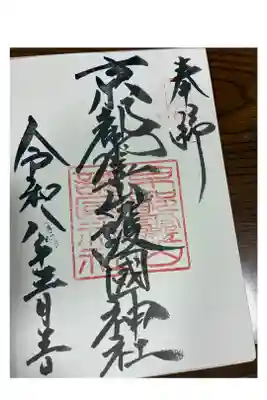 奉拝
京都霊山護國神社
令和八年月日